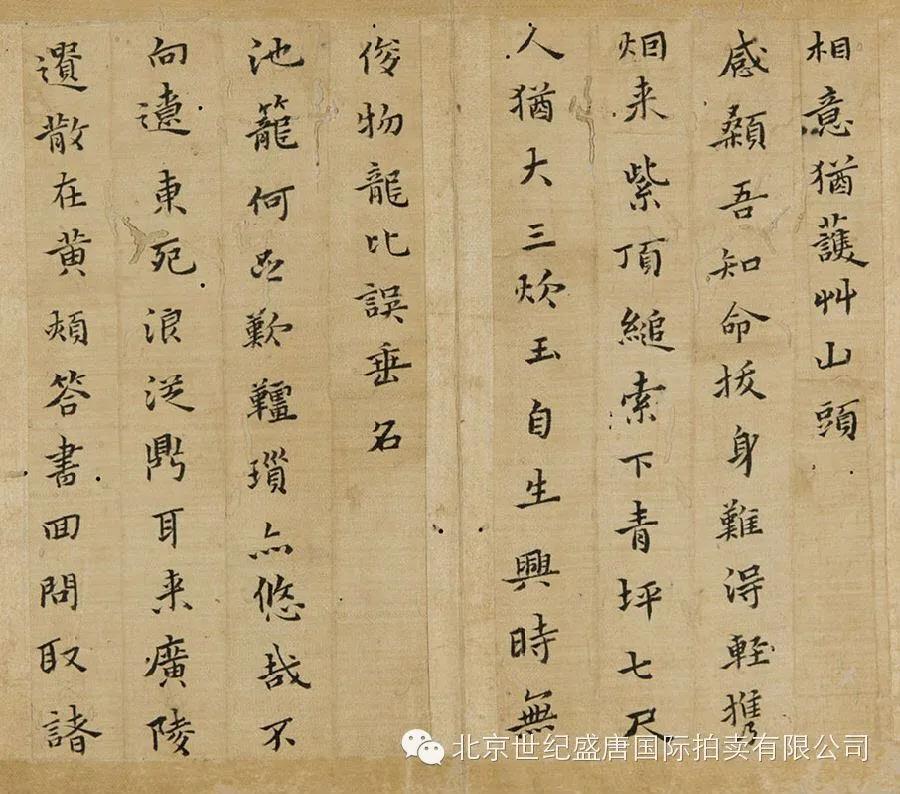 相意猶護艸山頭
感顙吾知命拔身難得輕攜
烟来紫頂縋索下青坪七尺
人猶大三炊玉自生興時無
俊物龍比誤垂名
池籠何足歎韁瑣亦悠哉不
向遼東死浪從鼎耳来廣陵
遺散在黄頰答書回問取諸
北京世纪盛唐国际拍卖有限公司